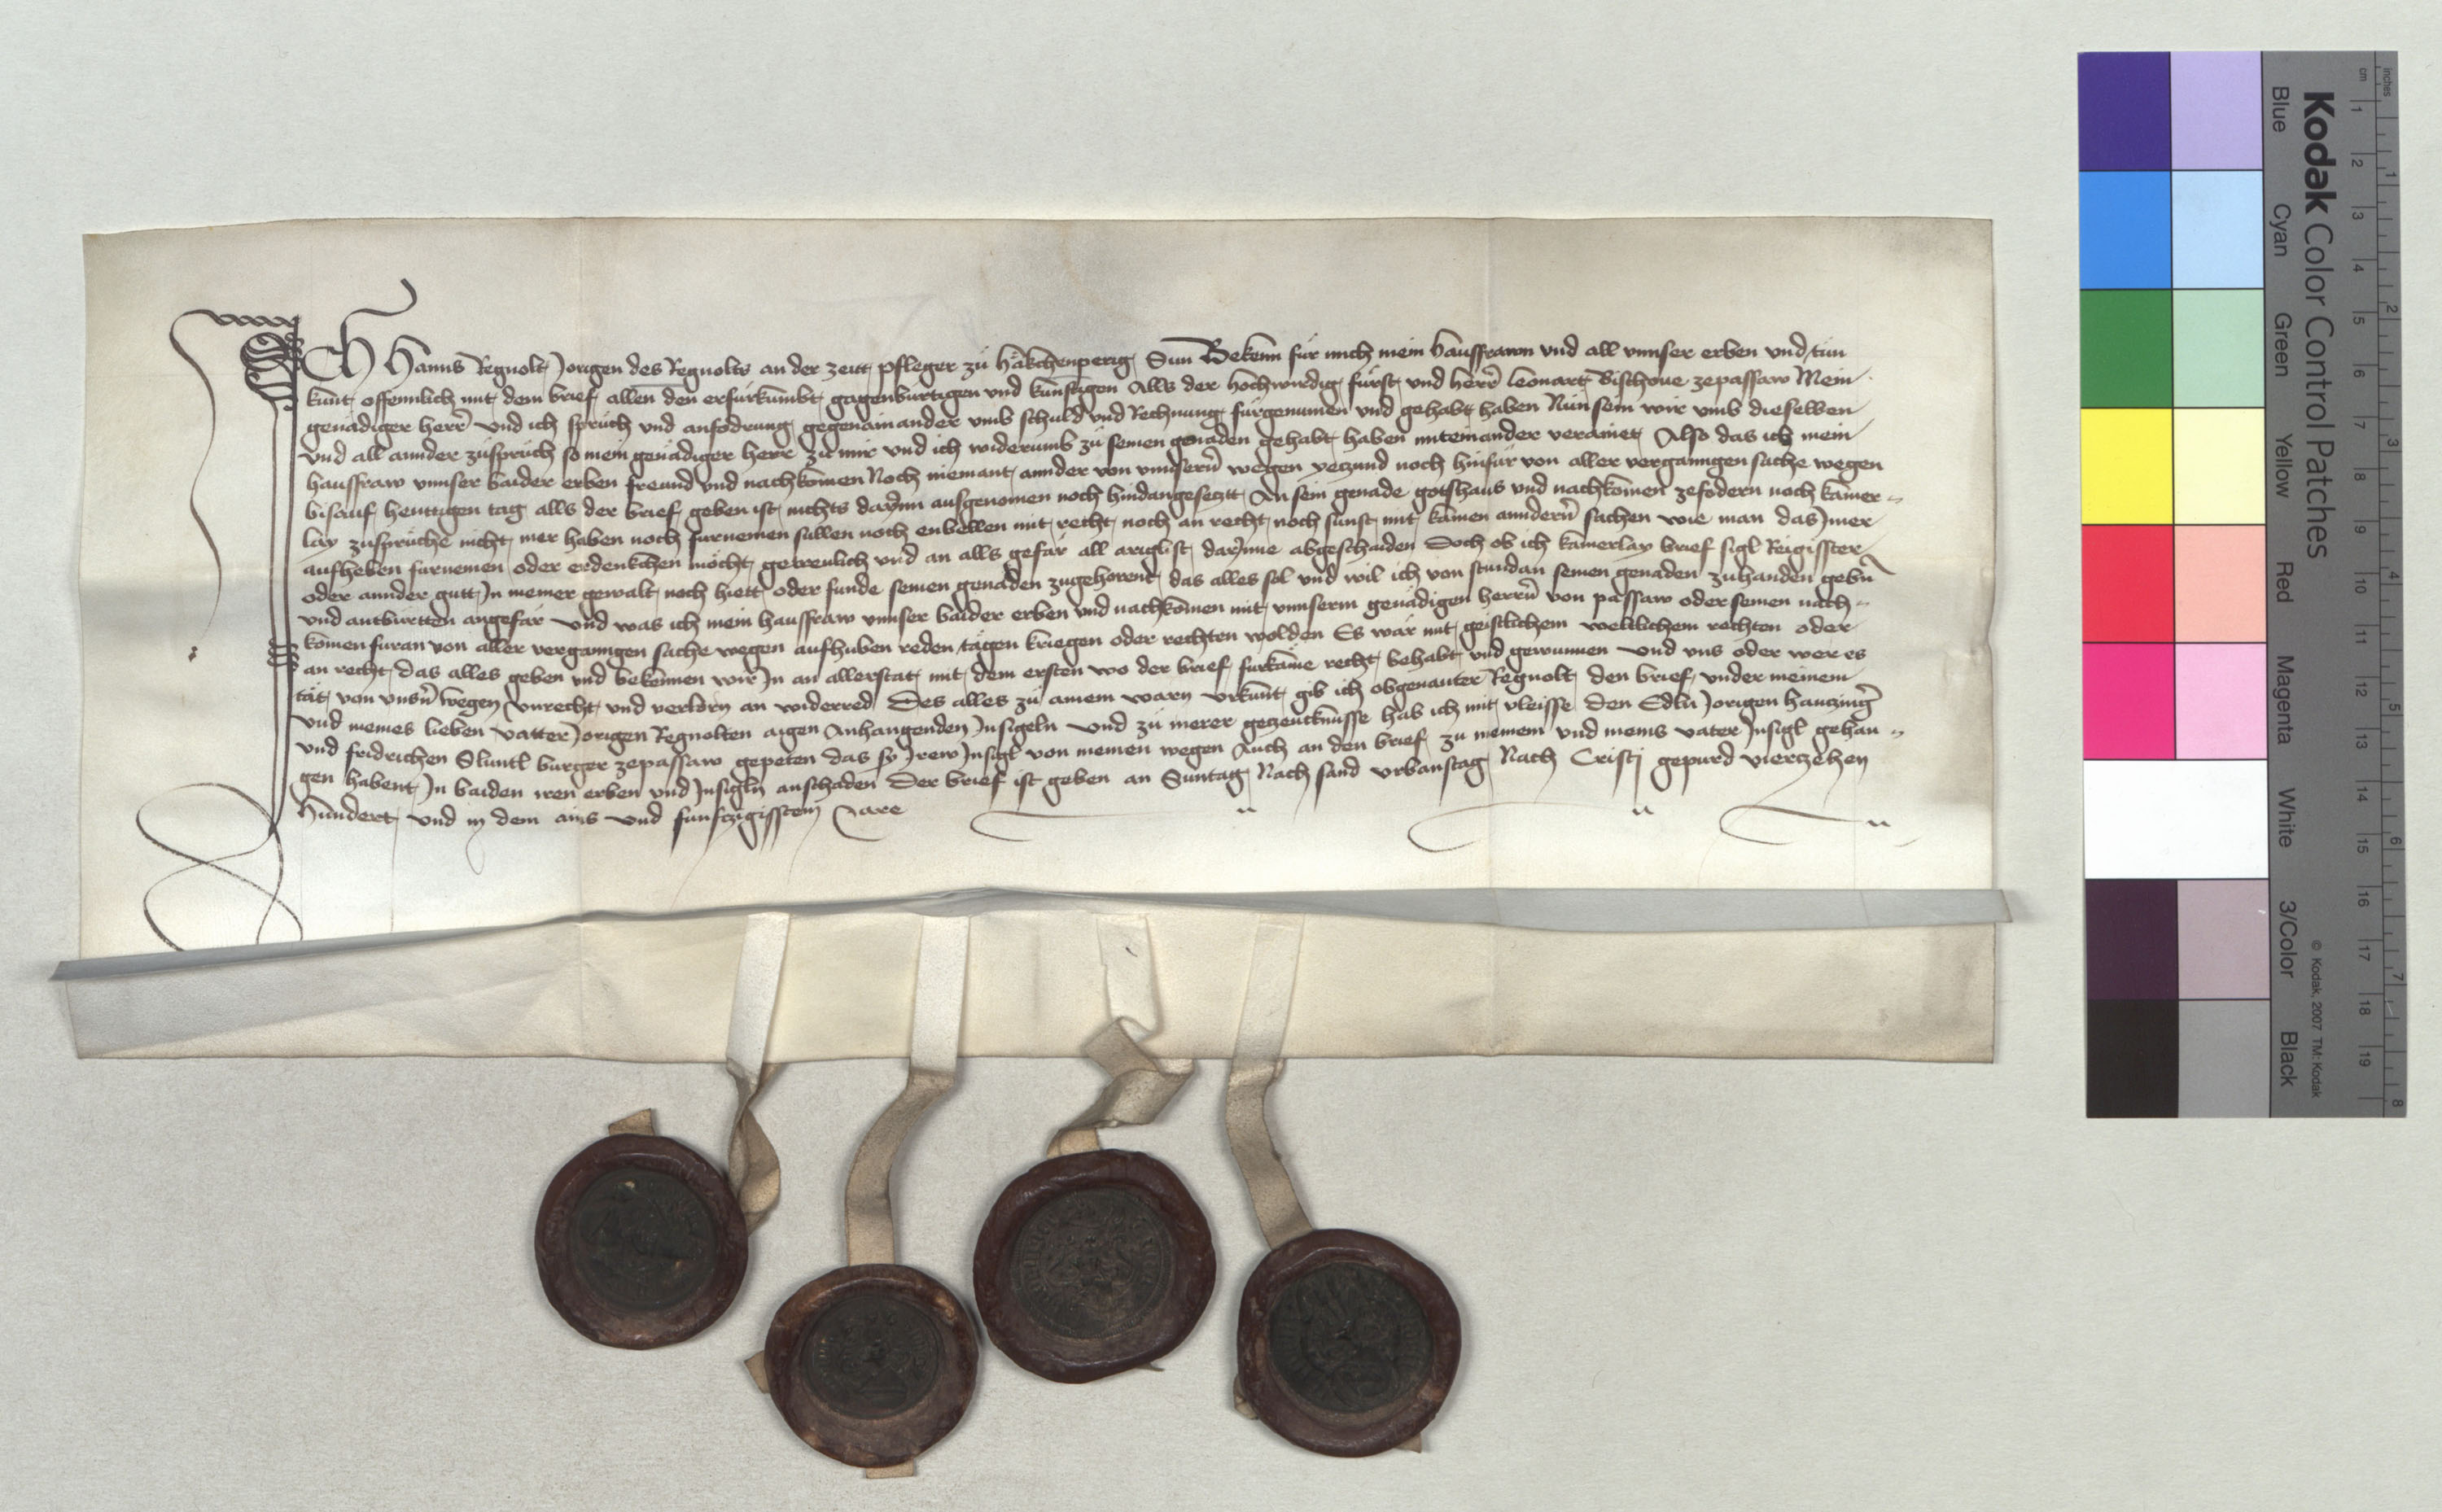 Ich Hanns Regnolt Jorigen des Regnolts an der zeitt pfleger zu häkchenperig Sun Bekenn fur mich mein haussfrawn vnd all vnnser erben vnd tun
kunt offennlich mit dem brief allen den erfürkumbt gagenburtigen vnd kunftigen Alls der hochwirdig fürst vnd herr Leonart Bischoue zepassaw Mein
genädiger herr vnd ich spruch vnd anfodrung gegenainander vmb schuld vnd Rechnung fürgenumen vnd gehabt haben Nun sein wir vmb dieselben
vnd all annder zuspruch so mein genädiger herr zu mir vnd ich widerumb zu seinen genaden gehabt haben miteinander verainet Also das ich mein
haussfraw vnnser baider erben freund vnd nachkomen Noch niemant annder von vnnsern wegen yeczund noch hinfür von aller verganngen sache wegen
bisauf heuttigen tag alls der brief geben ist nichts darynn ausgenomen noch hindangesetzt An sein genade gotshaus vnd nachkomen zefodern noch kainer
lay zuspruche nicht mer haben noch furnemen sullen noch enwellen mit recht noch an recht noch sunst mit kainen anndern sachen wie man das Jmer
aufheben furnemen oder erdenkchen möcht getreulich vnd an alls gefär all ariglist darJnne abgeschaiden Doch ob ich kainerlay brief sigl Reigisster
oder annder gutt Jn meiner gewalt noch hiett oder funde seinen genaden zugehorent das alles sol vnd wil ich von stundan seinen genaden zuhanden gebn
vnd antburtten angefär vnd was ich mein haussfraw vnnser baider erben vnd nachkomen mit vnnserm genädigen herrn von passaw oder seinen nach
komen furan von aller verganngen sache wegen aufhuben reden tägen kriegen oder rechten wolden Es wär mit geistlichem weltlichem rechten oder
an recht das alles geben vnd bekennen wir Jn an allerstat mit dem ersten wo der brief furkäme recht behabt vnd gewunnen vnd vns oder wer es
tät von vnsern wegen vnrecht vnd verlorn an widerred Des alles zu ainem warn vrkunt gib ich obgenanter Regnolt den brief vnder meinem
vnd meines lieben vatter Jorigen Regnolten aigen Anhangenden Jnsigeln vnd zu merer getzeucknusse hab ich mit vleisse den Edln Jorigen hautzinger
vnd fridrichen Sluntl burger zepassaw gepeten das sy Jrew Jnsigl von meinen wegen Auch an den brief zu meinem vnd meins vater Jnsigl gehan
gen habent Jn baiden iren erben vnd Jnsigln anschaden Der brief ist geben an Suntag Nach sand vrbanstag Nach Cristj gepurd viertzehen
hundert vnd in dem ains vnd funftzigisstem Jare
Kodak Color Control Patches
Blue Cyan Green Yellow Red Magenta White 3/Color Black
© Kodak, 2007 TM: Kodak
cm 1 2 3 4 5 6 7 8 9 10 11 12 13 14 15 16 17 18 19
inches 1 2 3 4 5 6 7 8